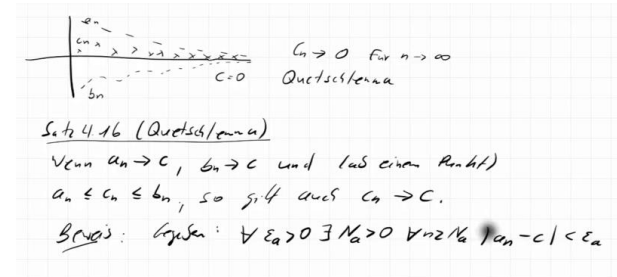 an
cn
bn
C=0
Cn → 0 für n → ∞
Quetschlemma
Satz 4.16 (Quetschlemma)
Wenn an → c, bn → c und (ab einem Punkt)
an ≤ cn ≤ bn, so gilt auch cn → c.
Beweis: Gegeben: ∀ εa>0 ∃ Na>0 ∀n≥Na |an-c| < εa